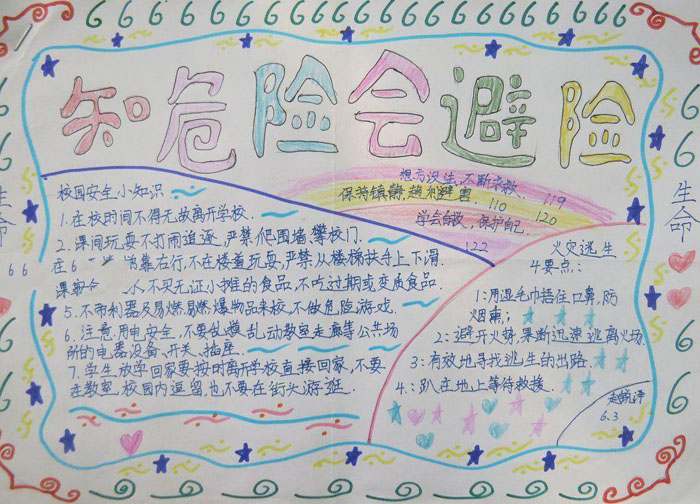 知危险会避险
校园安全小知识
1.在校时间不得无故离开学校.
2.课间玩耍不打闹追逐,严禁爬围墙、攀校门.
靠右行,不在楼道玩耍,严禁从楼梯扶手上下滑.
不买无证小摊的食品,不吃过期或变质食品.
5.不带利器及易燃易燃爆物品来校,不做危险游戏.
6.注意用电安全,不要乱摸乱动教室走廊等公共场
所的电器设备、开关、插座.
7.学生放学回家要按时离开学校直接回家,不要
在教室、校园内逗留,也不要在街头游逛.
想方设法,不断求救.
保持镇静,趋利避害.
学会自救,保护自己.
119
110
120
122
火灾逃生
4要点:
1:用湿毛巾捂住口鼻,防
烟熏;
2:避开火势,果断迅速逃离火场
3:有效地寻找逃生的出路.
4:趴在地上等待救援.
6.3
生命
生命